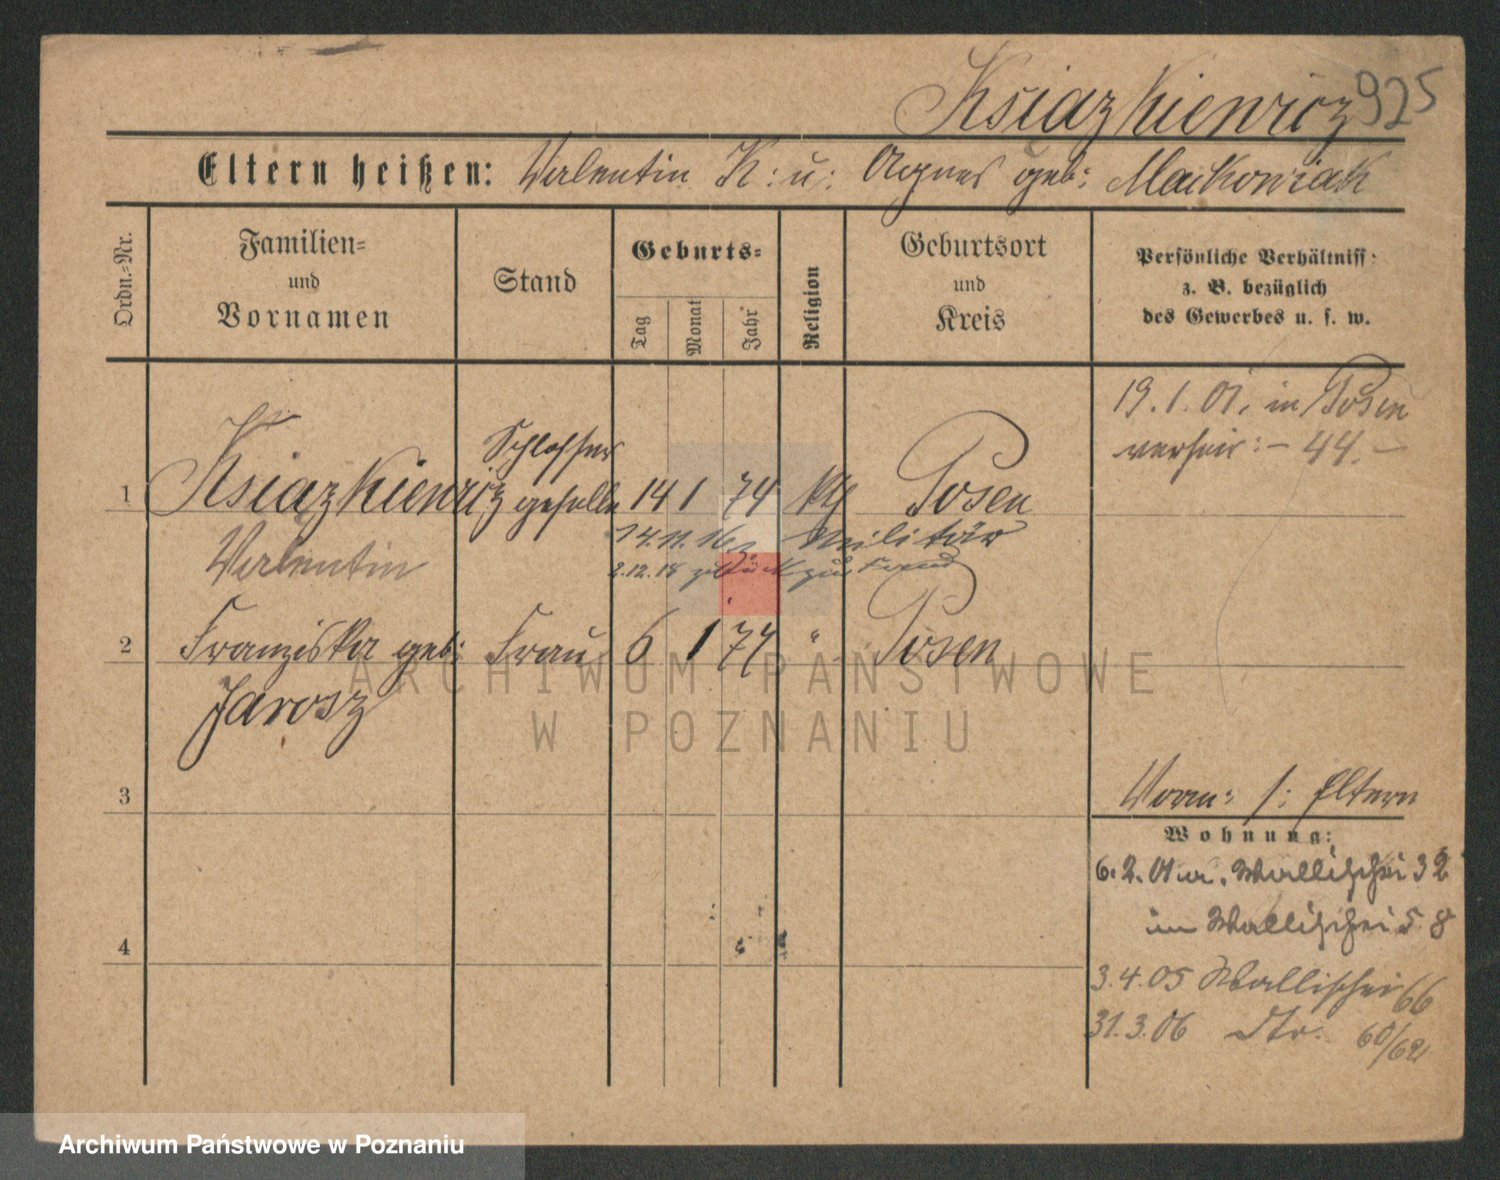 Książkiewicz 925
Eltern heißen: Valentin K: u: Agnes geb: Maćkowiak
Ordn.=Nr.
Familien=
und
Vornamen
Stand
Geburts=
Tag
Monat
Jahr
Religion
Geburtsort
und
Kreis
Persönliche Verhältniss:
z. B. bezüglich
des Gewerbes u. s. w.
19.1.01. in Posen
verheir: – 44. –
Schlosser
1 Książkiewicz geselle 14 1 74 kth Posen
Valentin
14.11.16 z. Militär
2.12.18 zurück
2 Franziska geb: Frau 6 1 74 " Posen
Jarosz
3
4
Vorm: s: Eltern
Wohnung:
6.2.01 Wallischei 32
im Wallischei 58
3.4.05 Wallischei 66
31.3.06 Dto. 60/62
ARCHIWUM PAŃSTWOWE
W POZNANIU
Archiwum Państwowe w Poznaniu